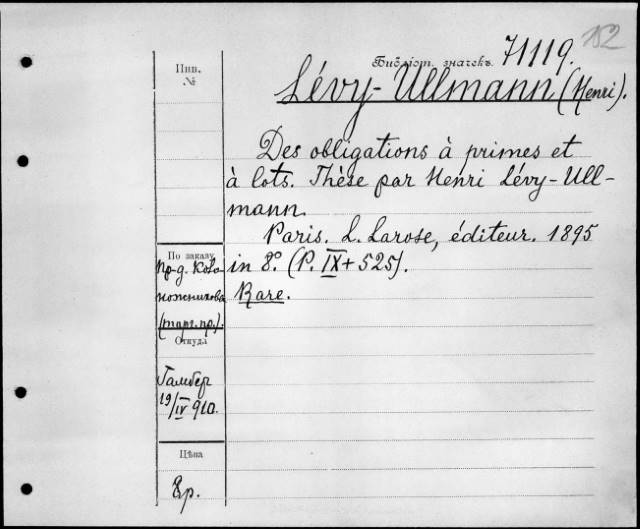 152
Инв.
№
Библіот. значекъ 71119.
Lévy-Ullmann (Henri).
Des obligations à primes et
à lots. Thèse par Henri Lévy-Ull-
mann.
Paris. L. Larose, éditeur. 1895
in 8.° (P. IX + 525).
Rare.
По заказу
пр-д.
(торг. пр.).
Откуда
19/IV 910.
Цѣна
8р.